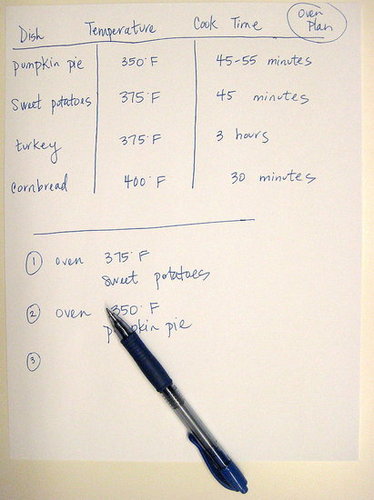 Oven Plan
Dish Temperature Cook Time
pumpkin pie 350°F 45-55 minutes
Sweet potatoes 375°F 45 minutes
turkey 375°F 3 hours
Cornbread 400°F 30 minutes
① oven 375°F
sweet potatoes
② oven 350°F
pumpkin pie
③